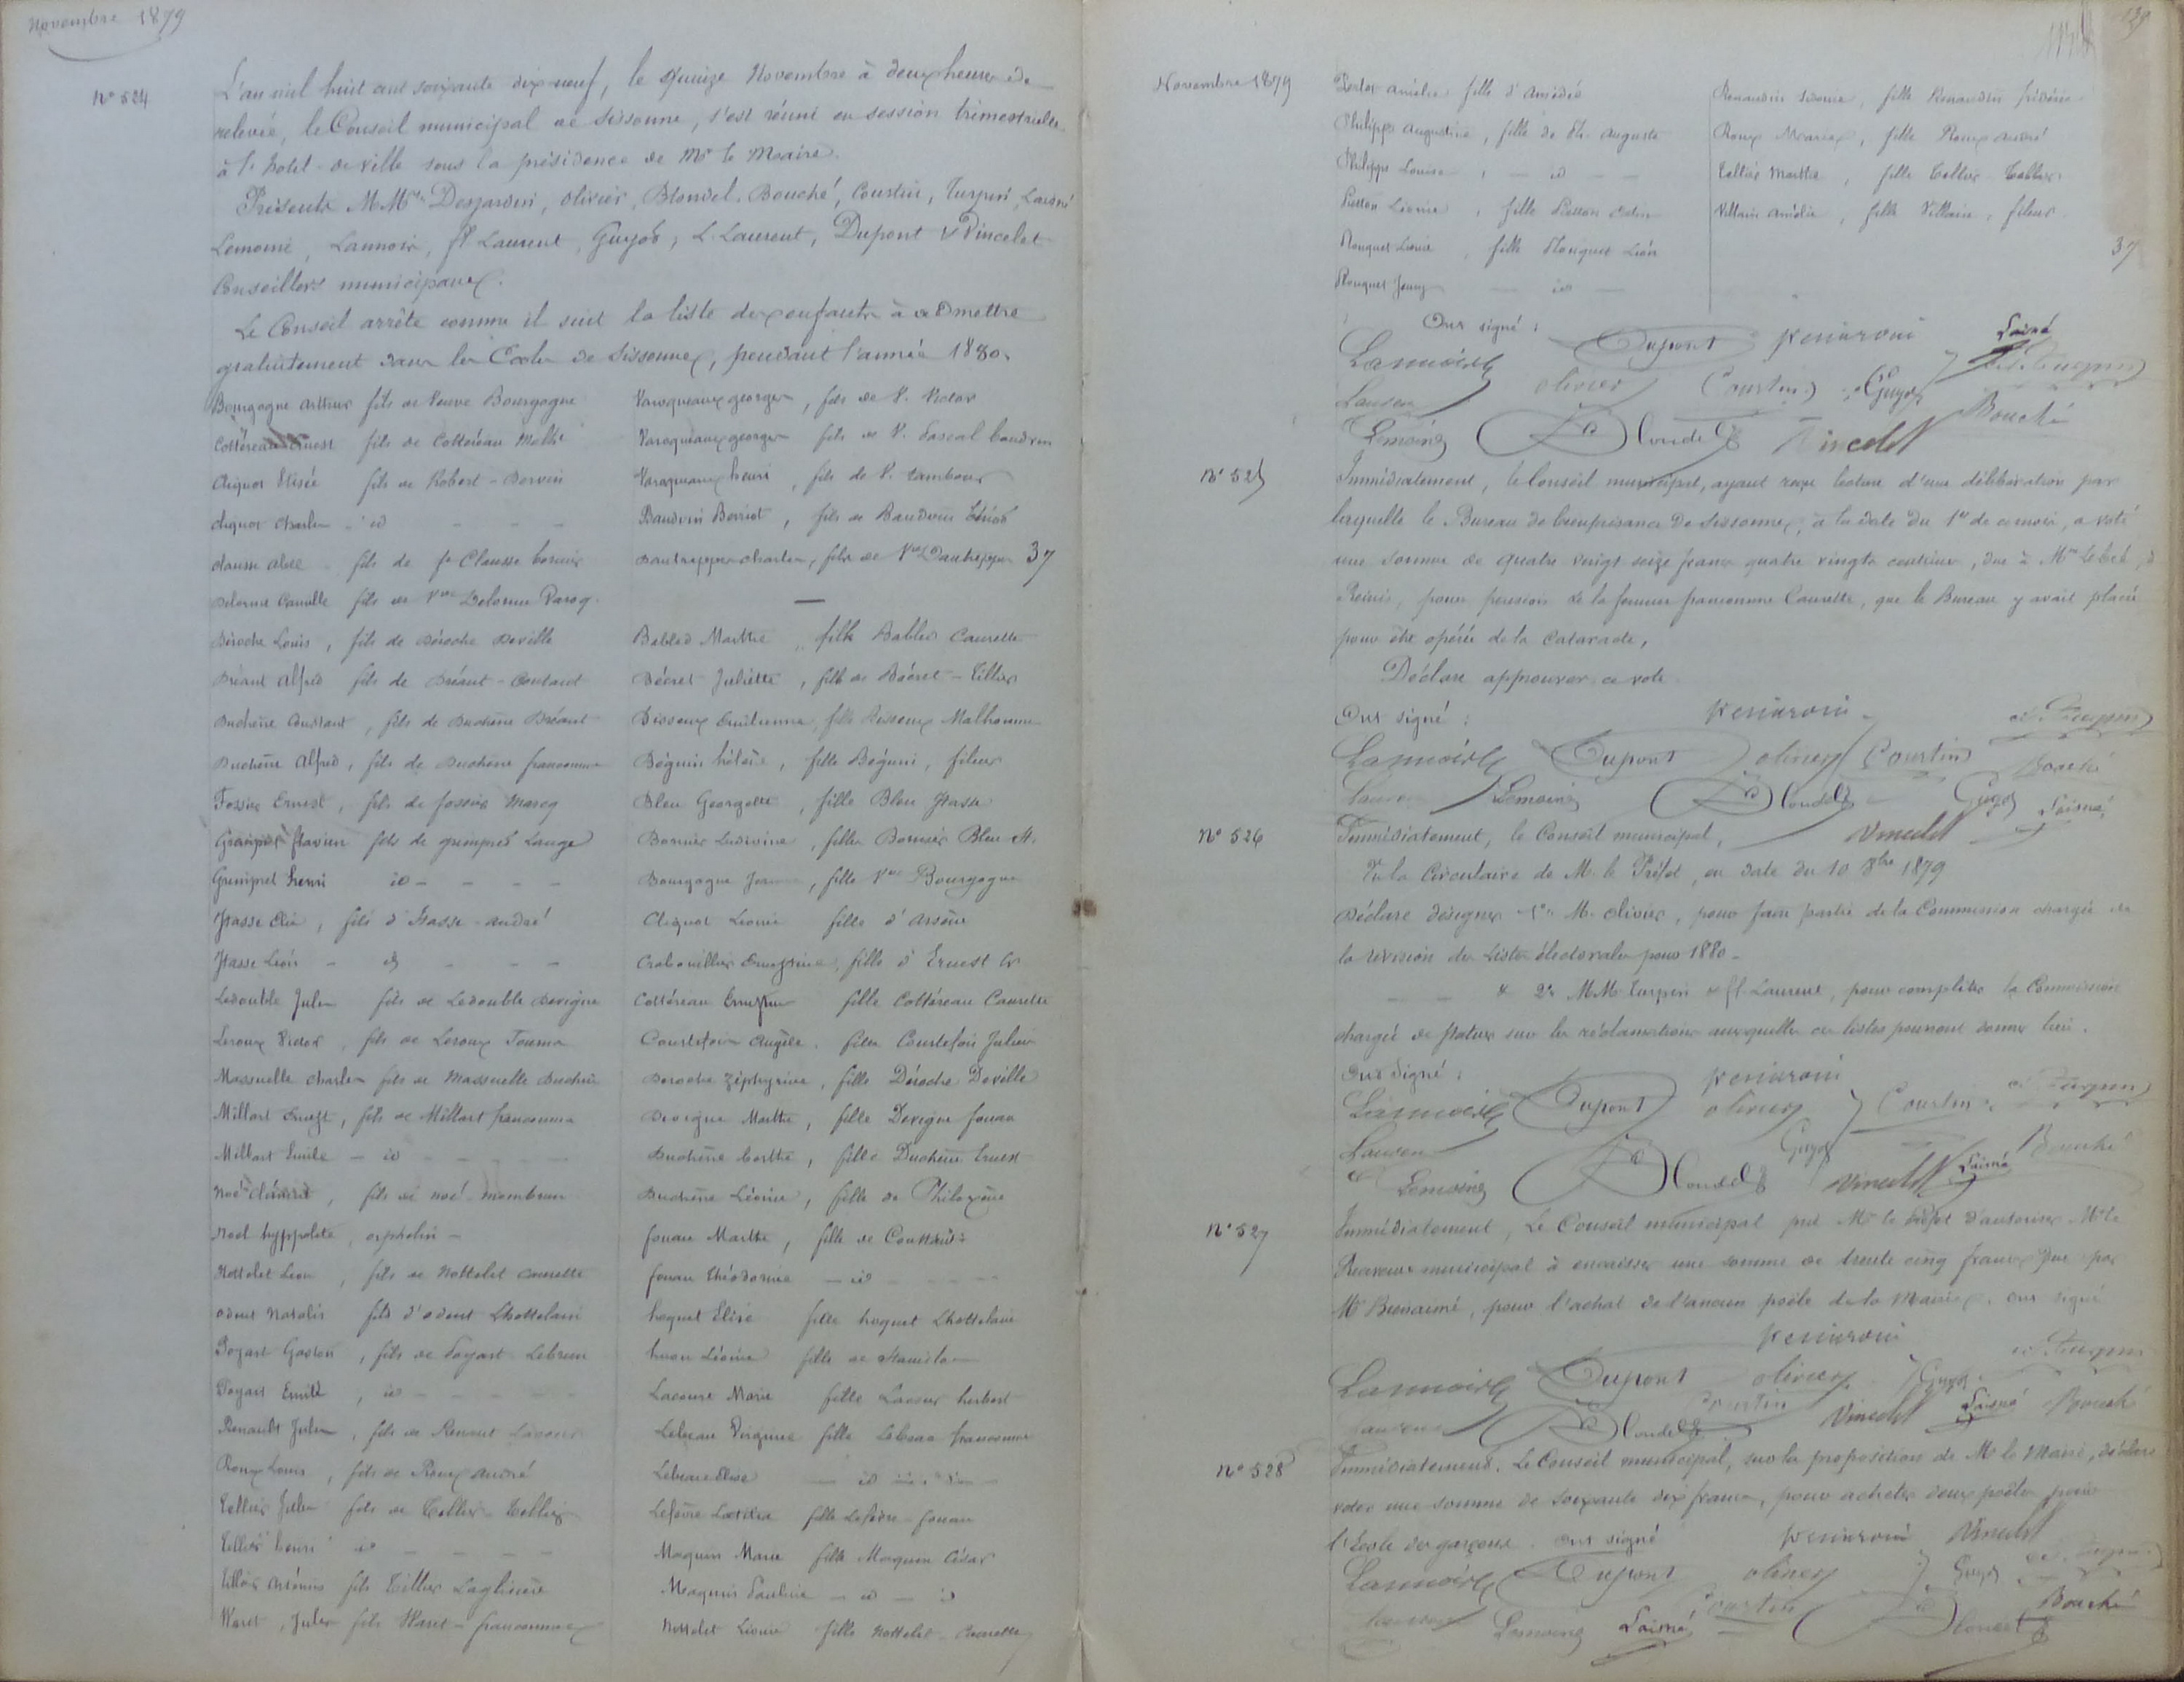 Novembre 1879
N° 524
L'an mil huit cent soixante dix neuf, le quinze Novembre à deux heures de
relevée, le Conseil municipal de Sissonne, s'est réuni en session trimestrielle
à l'hotel-de ville sous la présidence de Mr le Maire.
Présents MMrs Desjardin, Olivier, Blondel, Bouché, Courtin, Turpin, Laisné
Lemoine, Lannois, fs Laurent, Guyot, L. Laurent, Dupont & Vincelet
Conseillers municipaux.
Le Conseil arrête comme il suit la liste des enfants à admettre
gratuitement dans les Ecoles de Sissonne, pendant l'année 1880.
Bourgogne Arthur fils de Veuve Bourgogne
Cottereau Ernest fils de Cottereau
Cliquot Elisée fils de Robert - Dervin
Cliquot Charles - id - - -
Clausse fils de fs Clausse
Delorme Camille fils de Vve Delorme Varoq.
Déroche Louis, fils de Déroche Deville
Bréant Alfred fils de Bréant - Contant
Duchêne Constant, fils de Duchêne Bréant
Duchêne Alfred, fils de Duchêne franconme
Fossier Ernest, fils de fossier Marcq
flavien fils de grimpret Lauge
Grimpret henri id - - - -
Hasse Elie, fils d'Hasse - André
Hasse Léon - id - - -
Ledouble Jules fils de Ledouble Devigne
Leroux Victor, fils de Leroux
Massuelle Charles fils de Massuelle Duchêne
Millart Ernest, fils de Millart franconme
Millart Emile - id - - - -
Noé, fils de noé
Noel hyppolite, orphelin -
Nottelet Leon, fils de Nottelet Caurette
Odent Natalis fils d'Odent Lhottelain
Poyart Gaston, fils de Poyart Lebrun
Poyart Emile, id - - - -
Renault Jules, fils de Renault
Roux Louis, fils de Roux André
Tellier Jules fils de Tellier Tellier
Tellier henri id - - - -
Tellier fils Tellier
Waret, Jules fils Waret - franconme
Varoqueaux georges, fils de V. Victor
Varoqueaux georges fils de V. Pascal baudoin
Varoqueaux henri, fils de V. tambour
Baudoin, fils de Baudoin
Dautreppe Charles, fils de Vve Dautreppe 37
—
Babled Marthe, fille Babled Caurette
Bécret Juliette, fille de Bécret - Tellier
Emilienne, fille Malhomme
Béguin hélène, fille Béguin, fileur
Bleu Georgette, fille Bleu Hasse
Bonnier Ludivine, fille Bonnier Bleu
Bourgogne, fille Vve Bourgogne
Cliquot Léonie fille d'Arsène
fille d'Ernest
Cottereau fille Cottereau Caurette
Courtefois Angèle, fille Courtefois Julien
Deroche Zéphyrine, fille Déroche Deville
Devigne Marthe, fille Devigne fouan
Duchêne berthe, fille Duchêne Ernest
Duchêne Léonie, fille de Philoxène
fouan Marthe, fille de
fouan Théodorine - id - - - -
hoquet Elise fille hoquet Lhottelain
huon Léonie fille de Stanislas
Lacour Marie fille Lacour herbert
Lebeau Virginie fille Lebeau franconme
Lebeau Elise - id - - -
Lefèvre Laetitia fille Lefèvre - fouan
Maquin Marie fille Maquin César
Maquin Pauline - id - id
Nottelet Léonie fille Nottelet - Caurette
139
Novembre 1879
Amélie fille d'Amédée
Philippe Augustine, fille de Ph. Auguste
Philippe Louise, - id - -
Pietton Léonie, fille Pietton
Plonquet, fille Plonquet Léon
Plonquet Jenny - id -
Renaudin, fille Renaudin frédéric
Roux Maria, fille Roux André
Tellier Marthe, fille Tellier Tellier
Villain Amélie, fille Villain, fileur
37
Ont signé :
Dupont
Laisné
Lannois
Olivier Courtin Guyot Turpin
Laurent Bouché
Lemoine Blondel Vincelet
N° 525
Immédiatement, le Conseil municipal, ayant reçu lecture d'une délibération par
laquelle le Bureau de bienfaisance de Sissonne, à la date du 1er de ce mois, a voté
une somme de quatre vingt seize francs quatre vingts centimes, due à Mme, à
Reims, pour pension de la femme franconme Caurette, que le Bureau y avait placée
pour être opérée de la cataracte,
Déclare approuver ce vote
Ont signé :
Turpin
Lannois Dupont Olivier Courtin Bouché
Laurent Lemoine Blondel Guyot Laisné
Vincelet
N° 526
Immédiatement, le Conseil municipal,
Vu la Circulaire de M. le Préfet, en date du 10 8bre 1879
Déclare désigner 1°. M. Olivier, pour faire partie de la Commission chargée de
la révision des listes électorales pour 1880 -
- - & 2° MM. Turpin & ff. Laurent, pour compléter la Commission
chargée de statuer sur les réclamations auxquelles ces listes pourront donner lieu.
Ont signé :
Lannois Dupont Olivier Courtin Turpin
Laurent Guyot Bouché
Lemoine Blondel Vincelet Laisné
N° 527
Immédiatement, Le Conseil municipal prie Mr le Préfet d'autoriser Mr le
Receveur municipal à encaisser une somme de trente cinq francs due par
Mr Bienaimé, pour l'achat de l'ancien poële de la Mairie. Ont signé
Turpin
Lannois Dupont Olivier Guyot
Laurent Blondel Courtin Vincelet Laisné Bouché
N° 528
Immédiatement. Le Conseil municipal, sur la proposition de Mr le Maire, déclare
voter une somme de soixante dix francs, pour acheter deux poëles pour
l'école des garçons. Ont signé Vincelet
Lannois Dupont Olivier Guyot Turpin
Laurent Lemoine Laisné Courtin Blondel Bouché